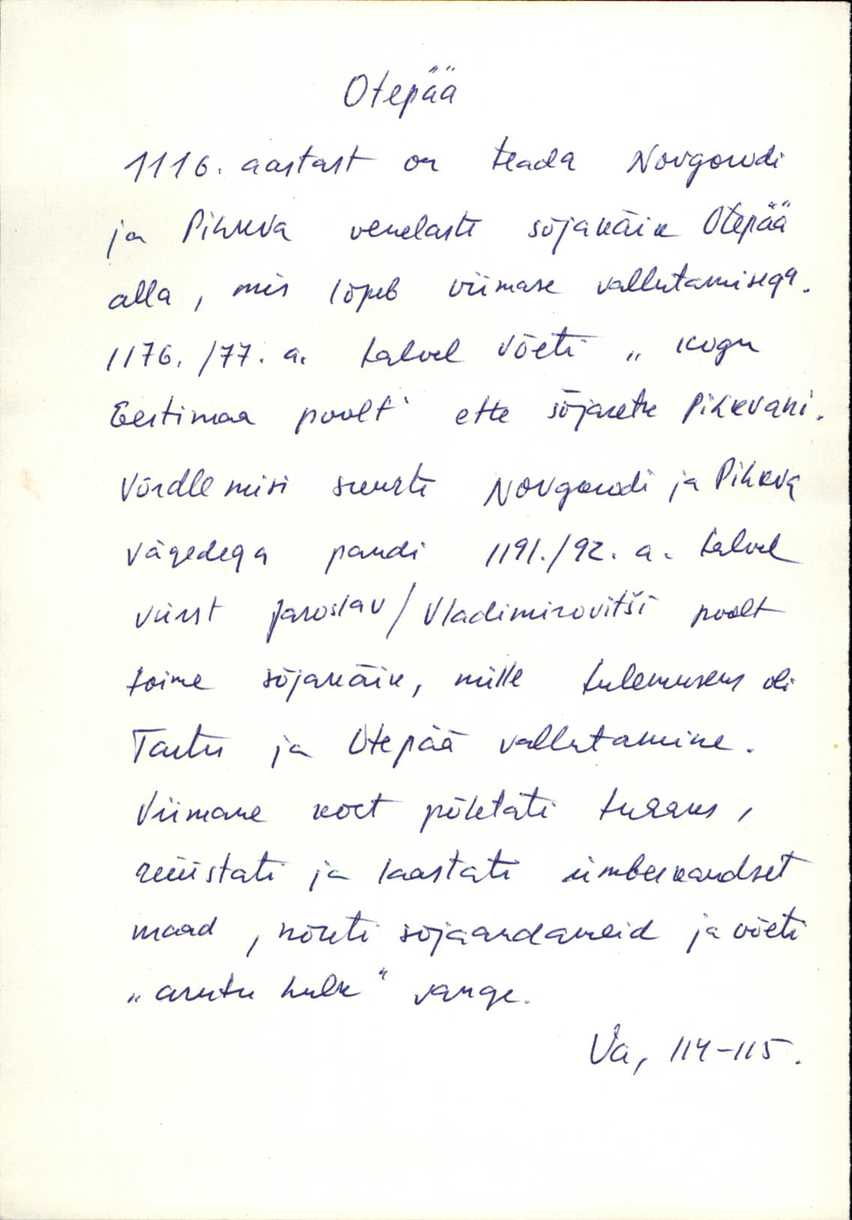 Otepää
1116. aastast on teada Novgorodi
ja Pihkva venelaste sõjakäik Otepää
alla, mis lõpeb viimase vallutamisega.
1176./77. a. talvel võeti „kogu
Eestimaa poolt" ette sõjaretk Pihkvani.
Võrdlemisi suurte Novgorodi ja Pihkva
vägedega pandi 1191./92. a. talvel
vürst Jaroslav/Vladimirovitši poolt
toime sõjakäik, mille tulemusens oli
Tartu ja Otepää vallutamine.
Viimane koet põletati tuhaks,
rüüstati ja laastati ümberkaudset
maad, nõuti sõjaandameid ja võeti
„arutu hulk" vange.
Va, 114-115.